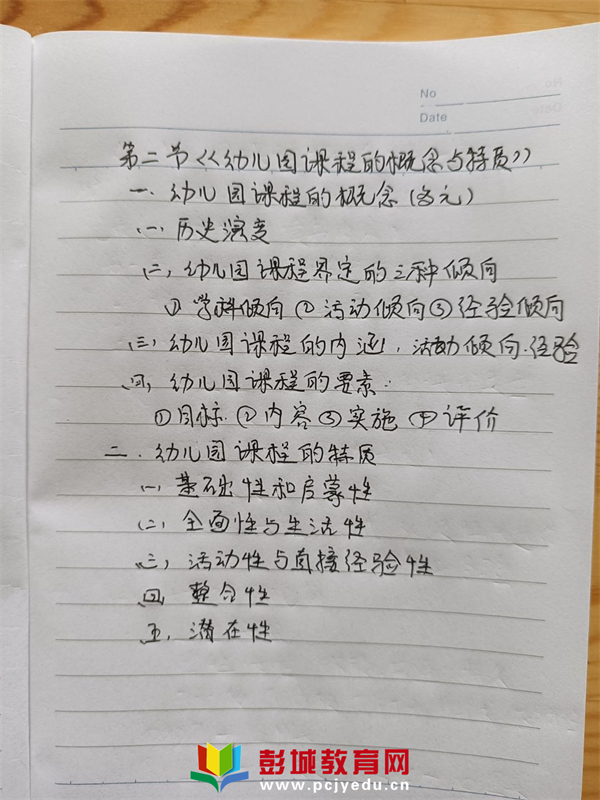 No
Date
第二节《幼儿园课程的概念与特质》
一、幼儿园课程的概念(多元)
(一)历史演变
(二)幼儿园课程界定的三种倾向
①学科倾向②活动倾向③经验倾向
(三)幼儿园课程的内涵,活动倾向.经验
(四)幼儿园课程的要素:
①目标.②内容③实施④评价
二.幼儿园课程的特质
(一)基础性和启蒙性
(二)全面性与生活性
(三)活动性与直接经验性
(四)整合性
(五)潜在性
彭城教育网
www.pcjyedu.cn